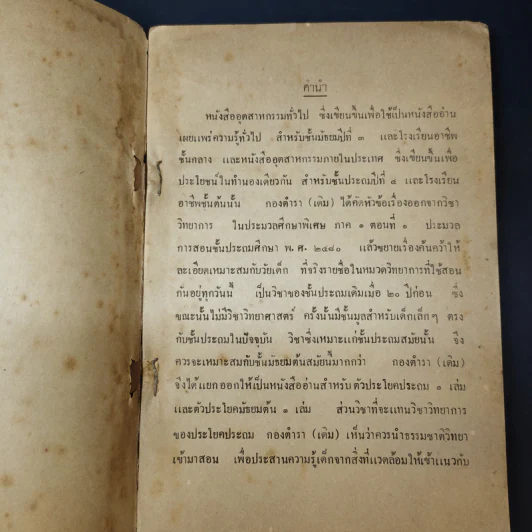 คำนำ
หนังสืออุตสาหกรรมทั่วไป ซึ่งเขียนขึ้นเพื่อใช้เป็นหนังสืออ่าน
เผยแพร่ความรู้ทั่วไป สำหรับชั้นมัธยมปีที่ ๓ และโรงเรียนอาชีพ
ชั้นกลาง และหนังสืออุตสาหกรรมภายในประเทศ ซึ่งเขียนขึ้นเพื่อ
ประโยชน์ในทำนองเดียวกัน สำหรับชั้นประถมปีที่ ๔ และโรงเรียน
อาชีพชั้นต้นนั้น กองตำรา (เดิม) ได้คัดหัวข้อเรื่องออกจากวิชา
วิทยาการ ในประมวลศึกษาพิเศษ ภาค ๑ ตอนที่ ๑ ประมวล
การสอนชั้นประถมศึกษา พ.ศ. ๒๔๘๐ แล้วขยายเรื่องค้นคว้าให้
ละเอียดเหมาะสมกับวัยเด็ก ที่จริงรายชื่อในหมวดวิทยาการที่ใช้สอน
กันอยู่ทุกวันนี้ เป็นวิชาของชั้นประถมเดิมเมื่อ ๒๐ ปีก่อน ซึ่ง
ขณะนั้นไม่มีวิชาวิทยาศาสตร์ ครั้งนั้นมีชั้นมูลสำหรับเด็กเล็กๆ ตรง
กับชั้นประถมในปัจจุบัน วิชาซึ่งเหมาะแก่ชั้นประถมสมัยนั้น จึง
ควรจะเหมาะสมกับชั้นมัธยมต้นสมัยนี้มากกว่า กองตำรา (เดิม)
จึงได้แยกออกให้เป็นหนังสืออ่านสำหรับตัวประโยคประถม ๑ เล่ม
และตัวประโยคมัธยมต้น ๑ เล่ม ส่วนวิชาที่จะแทนวิชาวิทยาการ
ของประโยคประถม กองตำรา (เดิม) เห็นว่าควรนำธรรมชาติวิทยา
เข้ามาสอน เพื่อประสานความรู้เด็กจากสิ่งที่แวดล้อมให้เข้าแนวกับ